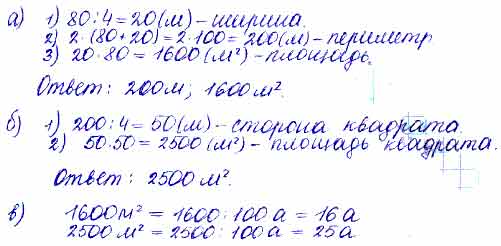 а) 1) 80:4=20(м)-ширина.
2) 2·(80+20)=2·100=200(м)-периметр
3) 20·80=1600(м²)-площадь.
Ответ: 200м; 1600м².
б) 1) 200:4=50(м)-сторона квадрата.
2) 50·50=2500(м²)-площадь квадрата.
Ответ: 2500м².
в) 1600м²=1600:100а=16а
2500м²=2500:100а=25а